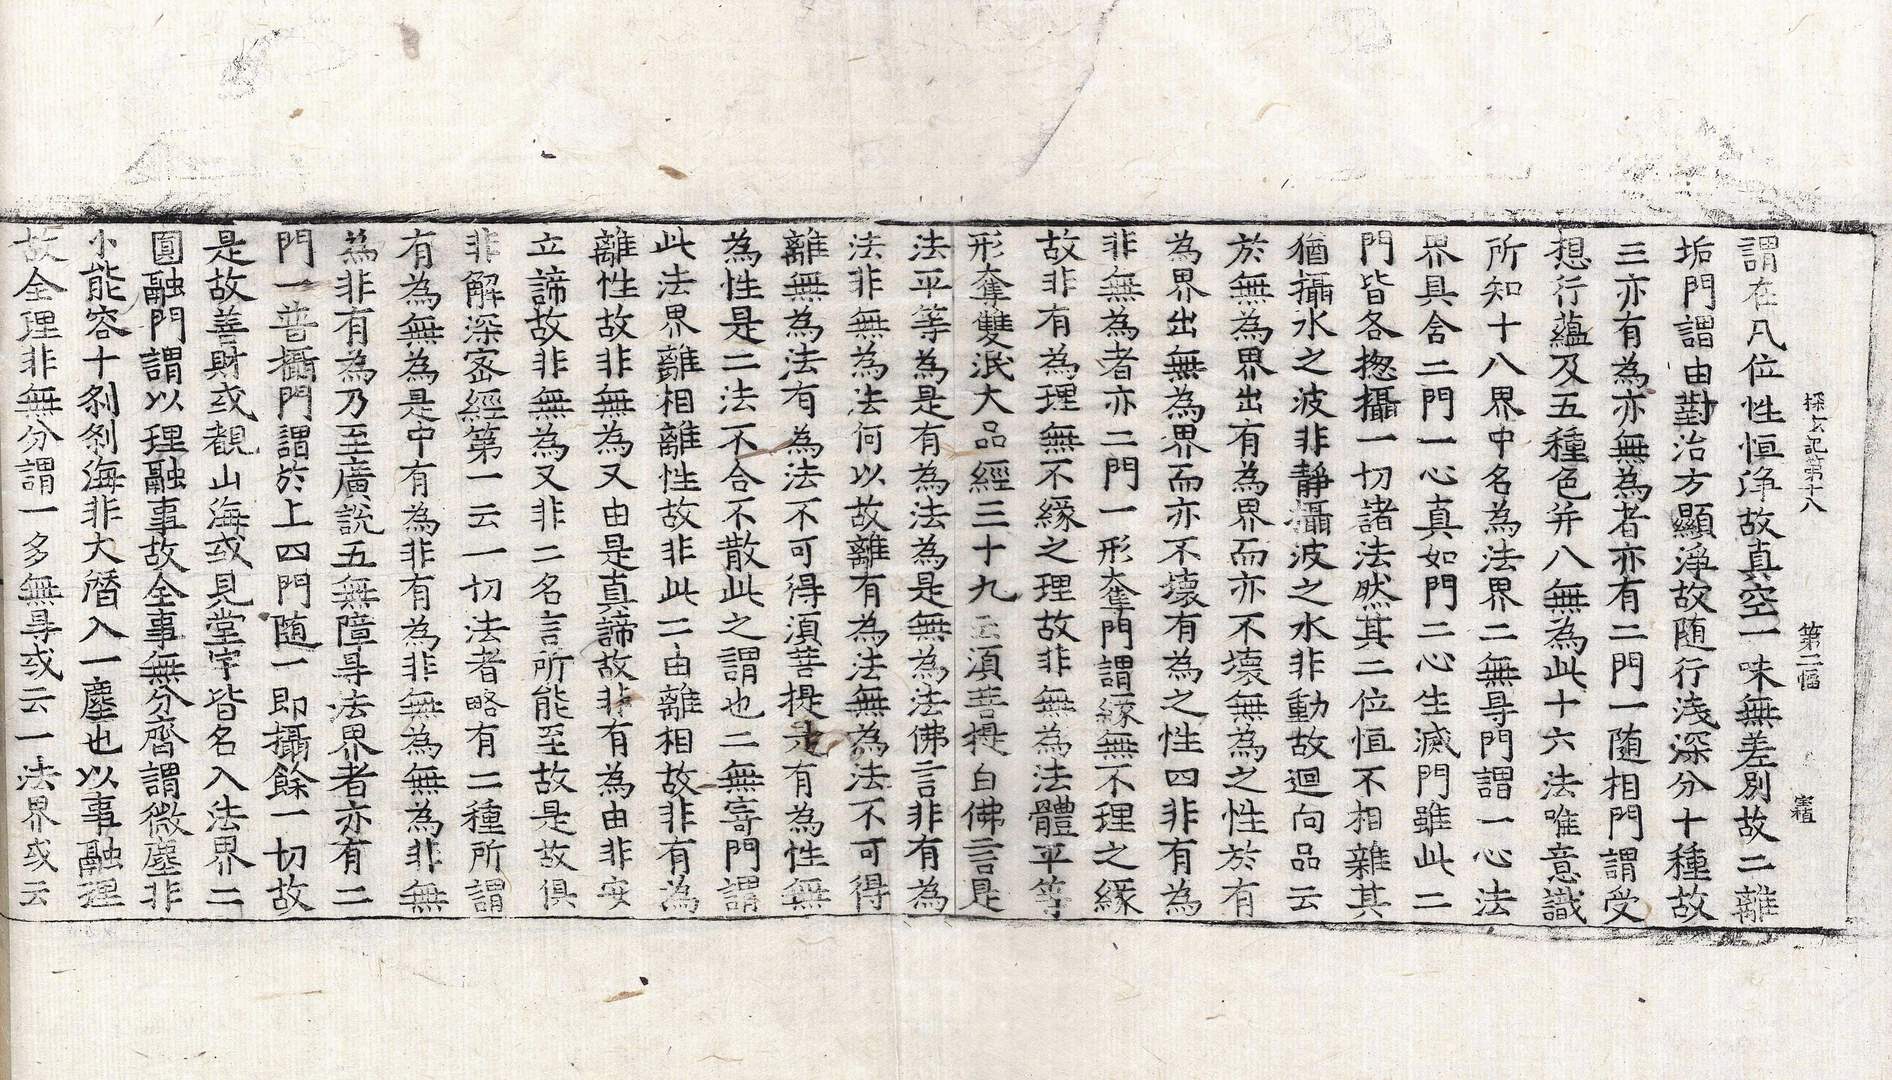 探玄記第十八　第二幅
謂在凡位性恒淨故真空一味無差別故二離
垢門謂由對治方顯淨故随行淺深分十種故
三亦有為亦無為者亦有二門一隨相門謂受
想行蘊及五種色并八無為此十六法唯意識
所知十八界中名為法界二無㝵門謂一心法
界具含二門一心真如門二心生滅門雖此二
門皆各揔攝一切諸法然其二位恒不相雜其
猶攝水之波非靜攝波之水非動故迴向品云
於無為界出有為界而亦不壞無為之性於有
為界出無為界而亦不壞有為之性四非有為
非無為者亦二門一形奪門謂緣無不理之緣
故非有為理無不緣之理故非無為法體平等
形奪雙泯大品經三十九云須菩提白佛言是
法平等為是有為法為是無為法佛言非有為
法非無為法何以故離有為法無為法不可得
離無為法有為法不可得須菩提是有為性無
為性是二法不合不散此之謂也二無寄門謂
此法界離相離性故非此二由離相故非有為
離性故非無為又由是真諦故非有為由非安
立諦故非無為又非二名言所能至故是故俱
非解深宻經第一云一切法者略有二種所謂
有為無為是中有為非有為非無為無為非無
為非有為乃至廣說五無障㝵法界者亦有二
門一普攝門謂於上四門随一即攝餘一切故
是故善財或覩山海或見堂宇皆名入法界二
圓融門謂以理融事故全事無分齊謂微塵非
小能容十剎剎海非大潛入一塵也以事融理
故全理非無分謂一多無㝵或云一法界或云